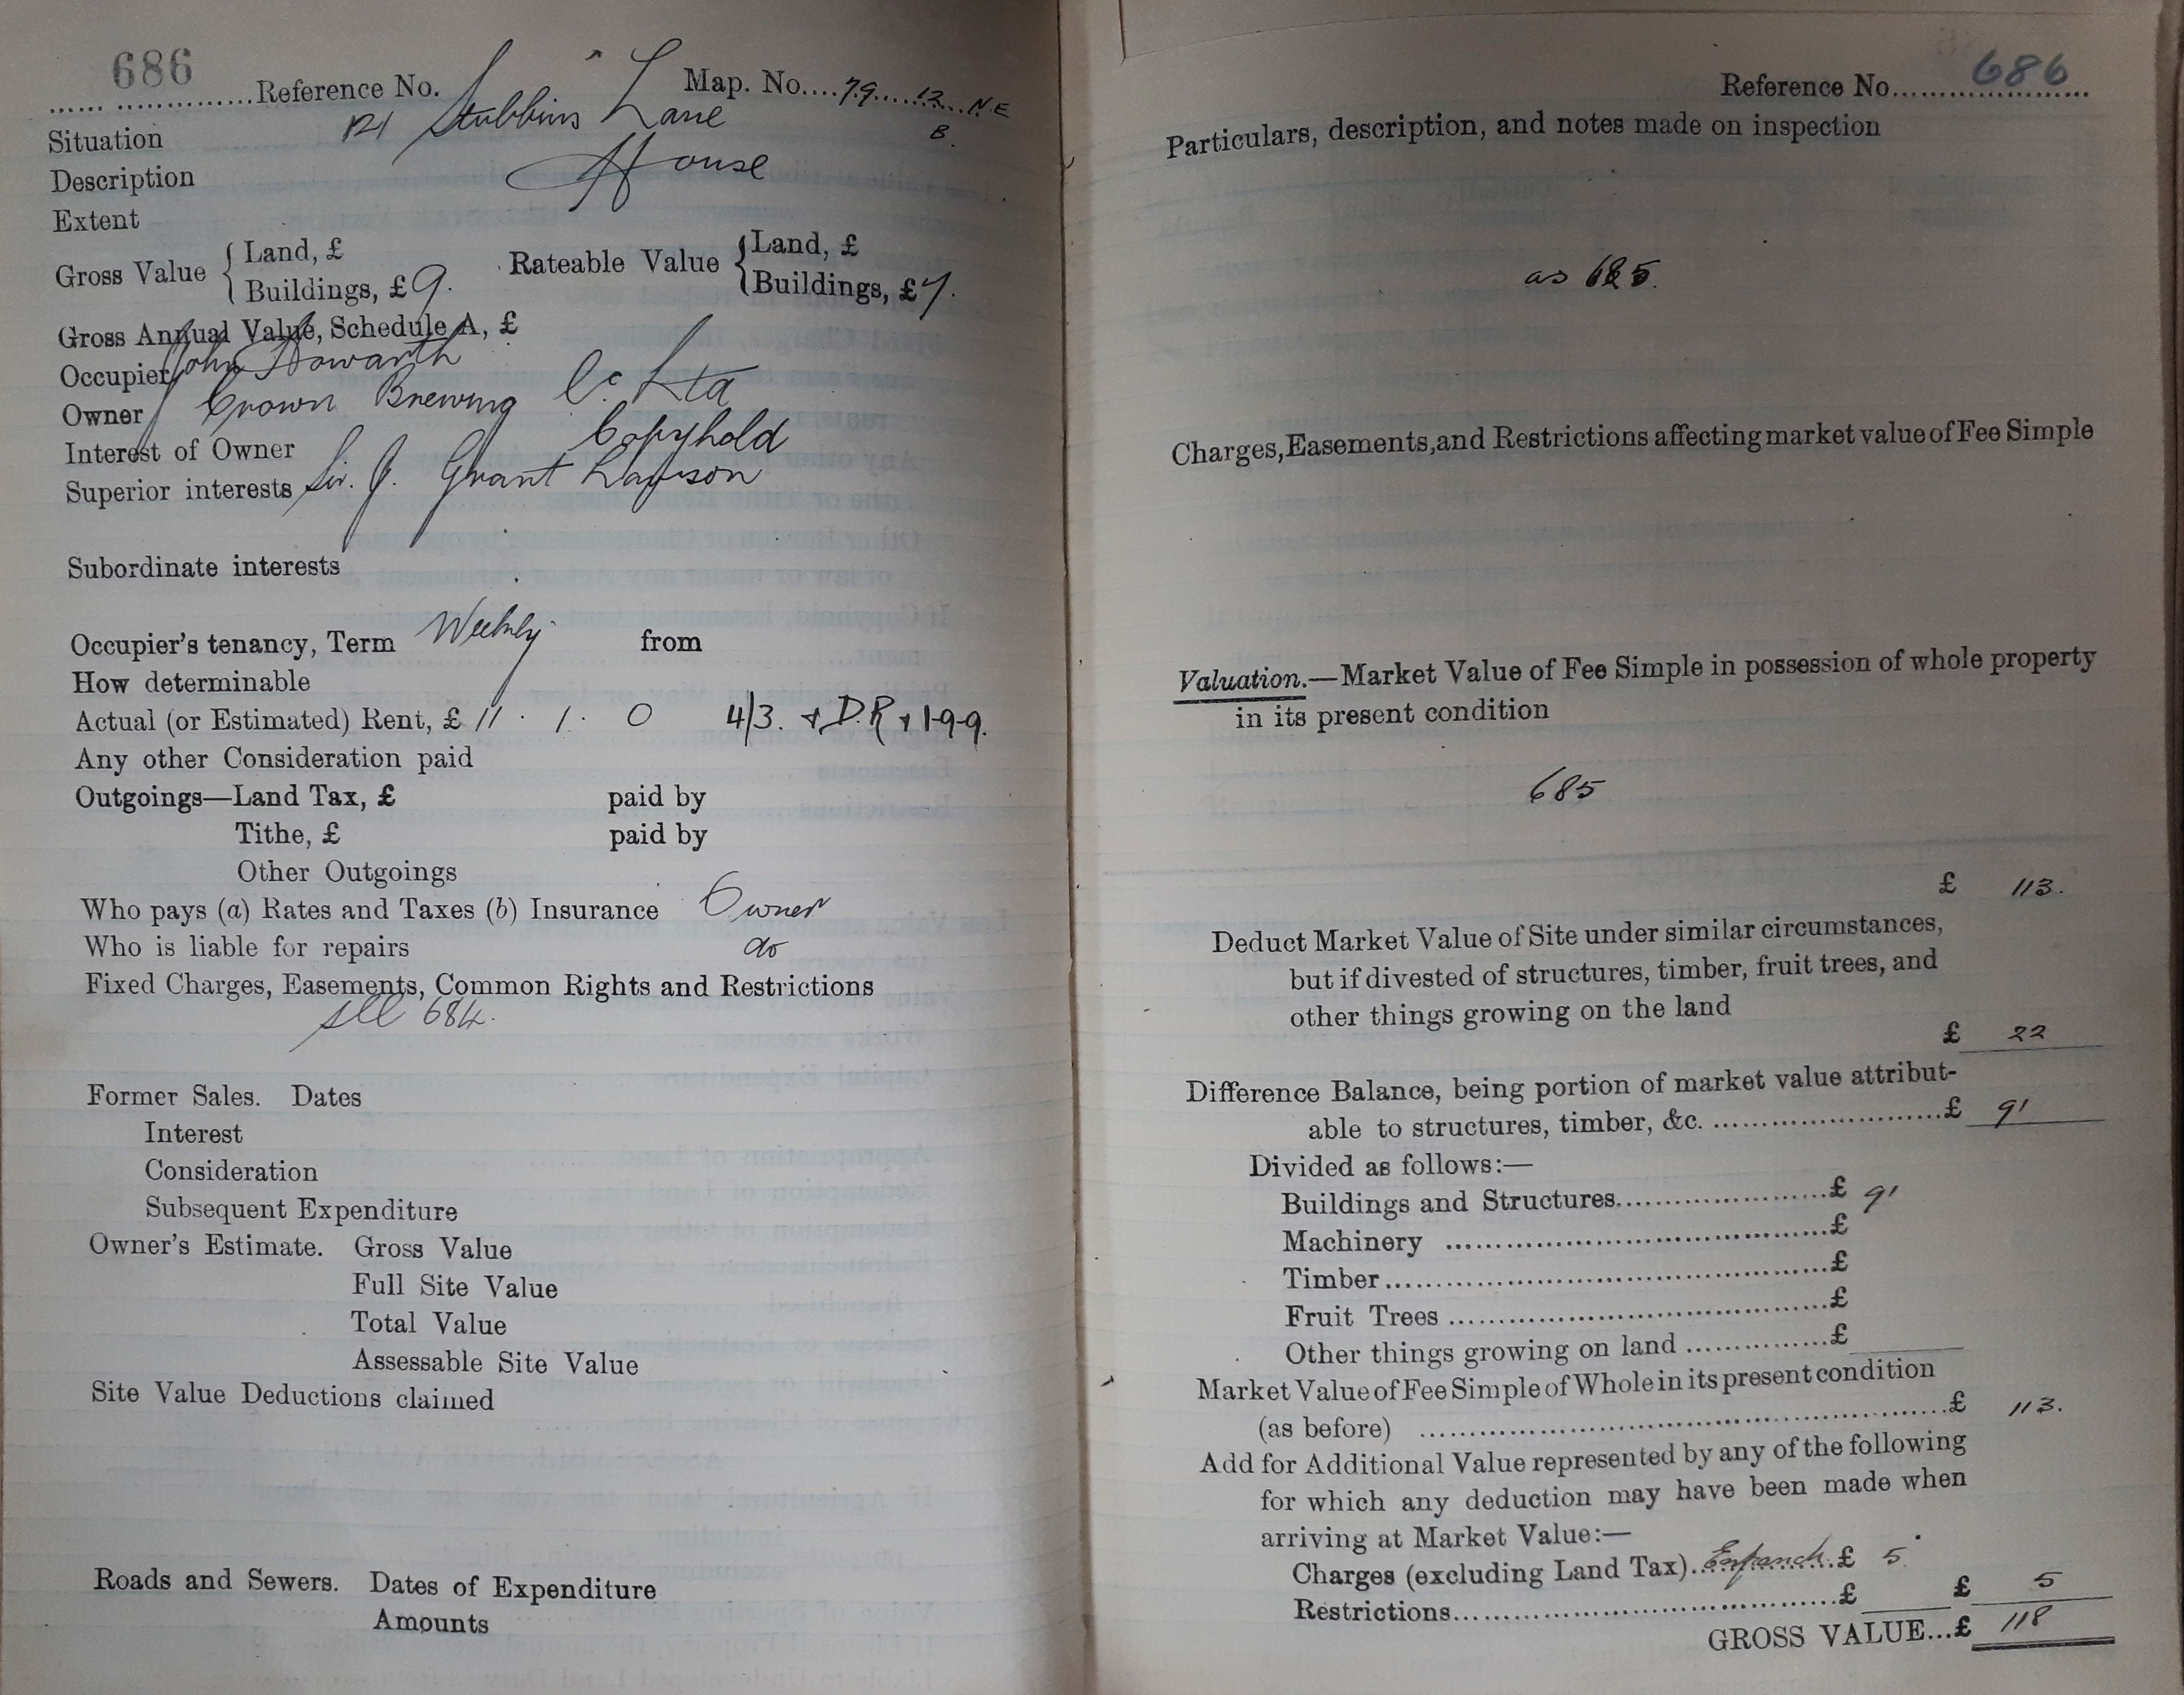 686 Reference No. Map. No. 79 12 N.E
B.
Situation 121 Stubbins Lane
Description House
Extent
Gross Value { Land, £ Rateable Value { Land, £
Buildings, £ 9. Buildings, £ 7.
Gross Annual Value, Schedule A, £
Occupier John Howarth
Owner Crown Brewing Co Ltd
Interest of Owner Copyhold
Superior interests Sir. J. Grant Lawson
Subordinate interests
Occupier's tenancy, Term Weekly from
How determinable
Actual (or Estimated) Rent, £ 11 . 1 . 0 4/3. + D.R + 1-9-9.
Any other Consideration paid
Outgoings—Land Tax, £ paid by
Tithe, £ paid by
Other Outgoings
Who pays (a) Rates and Taxes (b) Insurance Owner
Who is liable for repairs do
Fixed Charges, Easements, Common Rights and Restrictions
see 684.
Former Sales. Dates
Interest
Consideration
Subsequent Expenditure
Owner's Estimate. Gross Value
Full Site Value
Total Value
Assessable Site Value
Site Value Deductions claimed
Roads and Sewers. Dates of Expenditure
Amounts
Reference No. 686
Particulars, description, and notes made on inspection
as 685.
Charges, Easements, and Restrictions affecting market value of Fee Simple
Valuation.—Market Value of Fee Simple in possession of whole property
in its present condition
685
£ 113.
Deduct Market Value of Site under similar circumstances,
but if divested of structures, timber, fruit trees, and
other things growing on the land
£ 22
Difference Balance, being portion of market value attribut-
able to structures, timber, &c. £ 91
Divided as follows:—
Buildings and Structures £ 91
Machinery £
Timber £
Fruit Trees £
Other things growing on land £
Market Value of Fee Simple of Whole in its present condition
(as before) £ 113.
Add for Additional Value represented by any of the following
for which any deduction may have been made when
arriving at Market Value:—
Charges (excluding Land Tax) Enfranch. £ 5
Restrictions £ £ 5
GROSS VALUE...£ 118